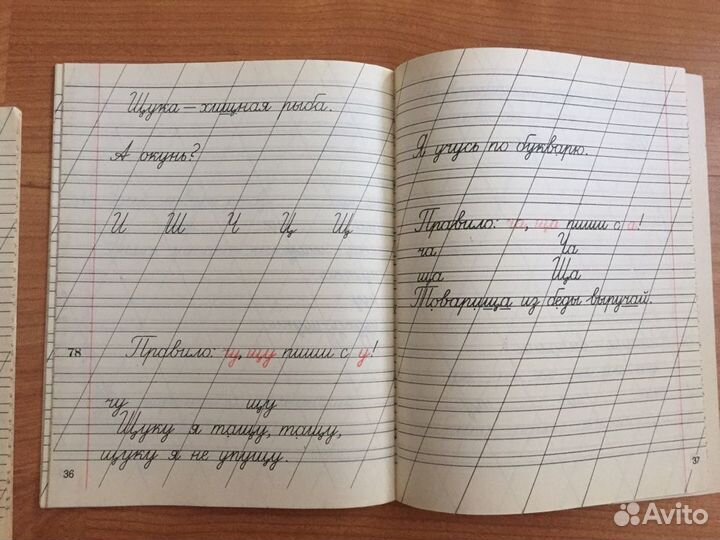 Щука – хищная рыба.
А окунь?
И Ш Ч Ц Щ
78 Правило: чу, щу пиши с у!
чу щу
Щуку я тащу, тащу,
щуку я не упущу.
36
Я учусь по букварю.
Правило: ча, ща пиши с а!
ча Ча
ща Ща
Товарища из беды выручай.
37
Avito